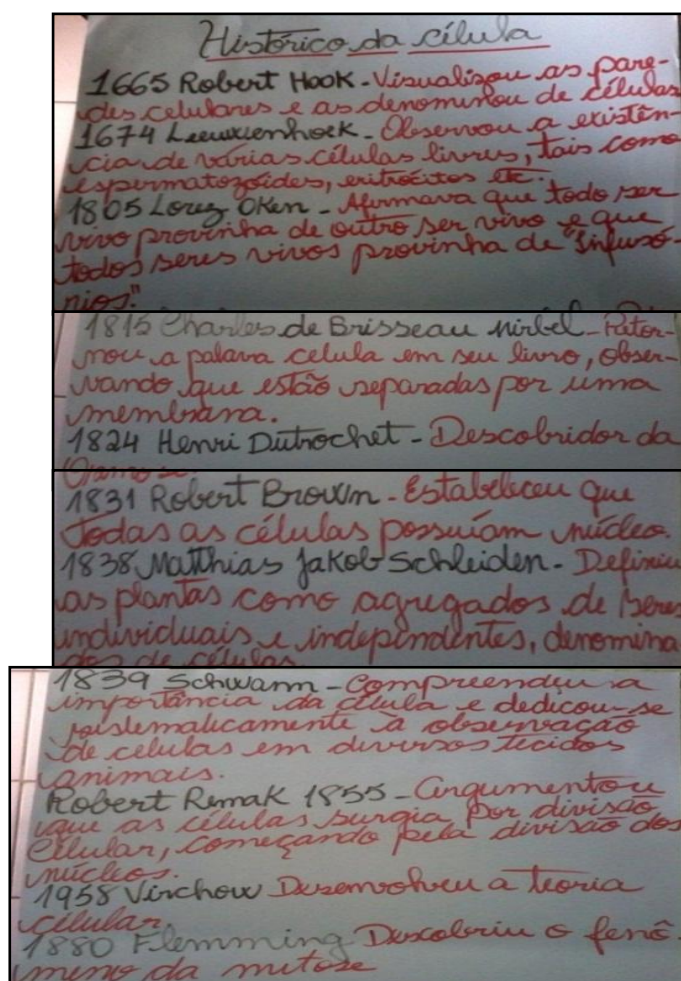 Histórico da célula
1665 Robert Hook - Visualizou as pare-
des celulares e as denominou de células
1674 Leeuwenhoek - Observou a existên-
cia de várias células livres, tais como
espermatozóides, eritrócitos etc.
1805 Lorez Oken - Afirmava que todo ser
vivo provinha de outro ser vivo e que
todos seres vivos provinha de "Infusó-
rios."
1815 Charles de Brisseau mirbel - Retor-
nou a palava celula em seu livro, obser-
vando que estão separadas por uma
membrana.
1824 Henri Dutrochet - Descobridor da
Osmose.
1831 Robert Brown - Estabeleceu que
todas as células possuíam núcleo.
1838 Matthias Jakob Schleiden - Definiu
as plantas como agregados de seres
individuais e independentes, denomina
dos de células
1839 Schwann - Compreendeu a
importância da célula e dedicou-se
sistematicamente à observação
de celulas em diversos tecidos
animais.
Robert Remak 1855 - Argumentou
que as células surgia por divisão
Celular, começando pela divisão dos
núcleos.
1958 Virchow Desenvolveu a teoria
celular.
1880 Flemming Descobriu o fenô-
meno da mitose